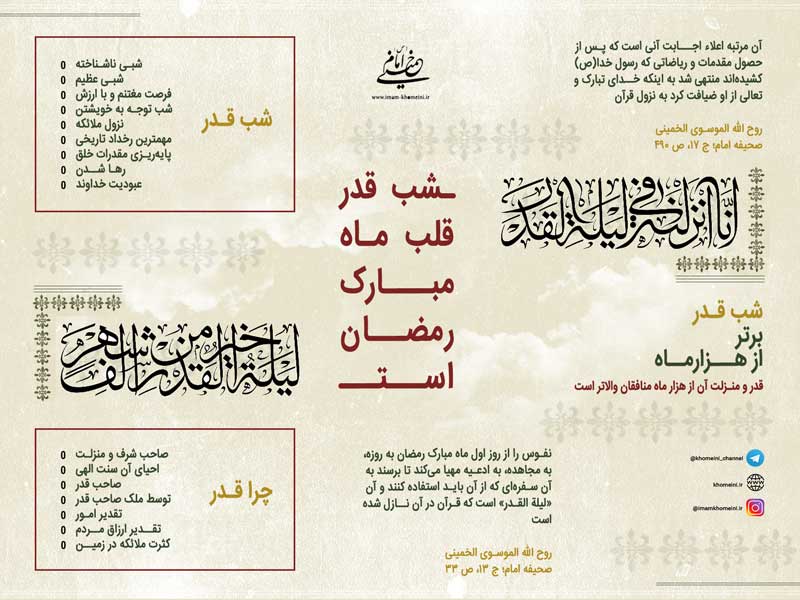 آن مرتبه اعلاء اجـــابت آنی است که پـس از
حصول مقدمات و ریاضاتی که رسول خدا(ص)
کشیده‌اند منتهی شد به اینکه خـدای تبارک و
تعالی از او ضیافت کرد به نزول قرآن
روح الله الموسـوی الخمینی
صحیفه امام؛ ج ۱۷، ص ۴۹۰
انا انزلنه فی لیلة القدر
شب قـدر
برتر
از هـــزارمـاه
قدر و منـزلت آن از هزار ماه منافقان والاتر است
@khomeini_channel
khomeini.ir
@imamkhomeini.ir
امام خمینی
www.imam-khomeini.ir
ـشب قدر
قلب مـاه
مبـــارک
رمضــان
اســتــ
نفـوس را از روز اول ماه مبارک رمضان به روزه،
به مجاهده، به ادعـیه مهیا می‌کند تا برسند به
آن سفـره‌ای که از آن بایـد استفاده کنند و آن
«لیلة القـدر» است که قـرآن در آن نـازل شده
است
روح الله الموسـوی الخمینی
صحیفه امام؛ ج ۱۳، ص ۳۳
شب قـدر
شبـی ناشـناخته
شبـی عظیم
فرصت مغتنم و با ارزش
شب توجـه به خویشتن
نزول ملائکه
مهمترین رخداد تاریخی
پایه‌ریـزی مقدرات خلق
رهـا شـدن
عبودیت خداوند
لیلة القدر خیر من الف شهر
چرا قـدر
صاحب شرف و منزلـت
احیای آن سنت الهی
صاحب قدر
توسط ملک صاحب قدر
تقدیر امـور
تقـدیر ارزاق مـردم
کثرت ملائکه در زمیـن